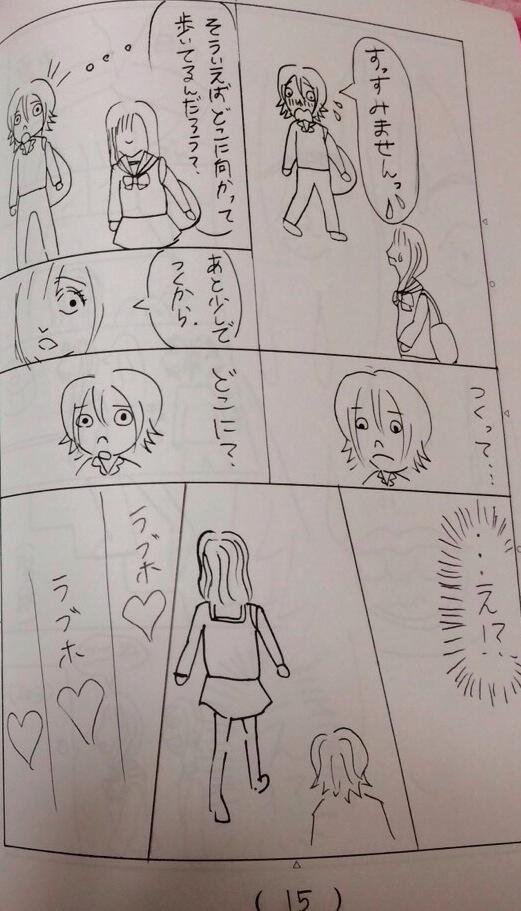 すっすみませんっ
そういえば、どこに向かって
歩いてるんだろう？
あと少しで
つくから。
つくって…
どこに？
…え!?
ラブホ♡
ラブホ♡
♡
(15)